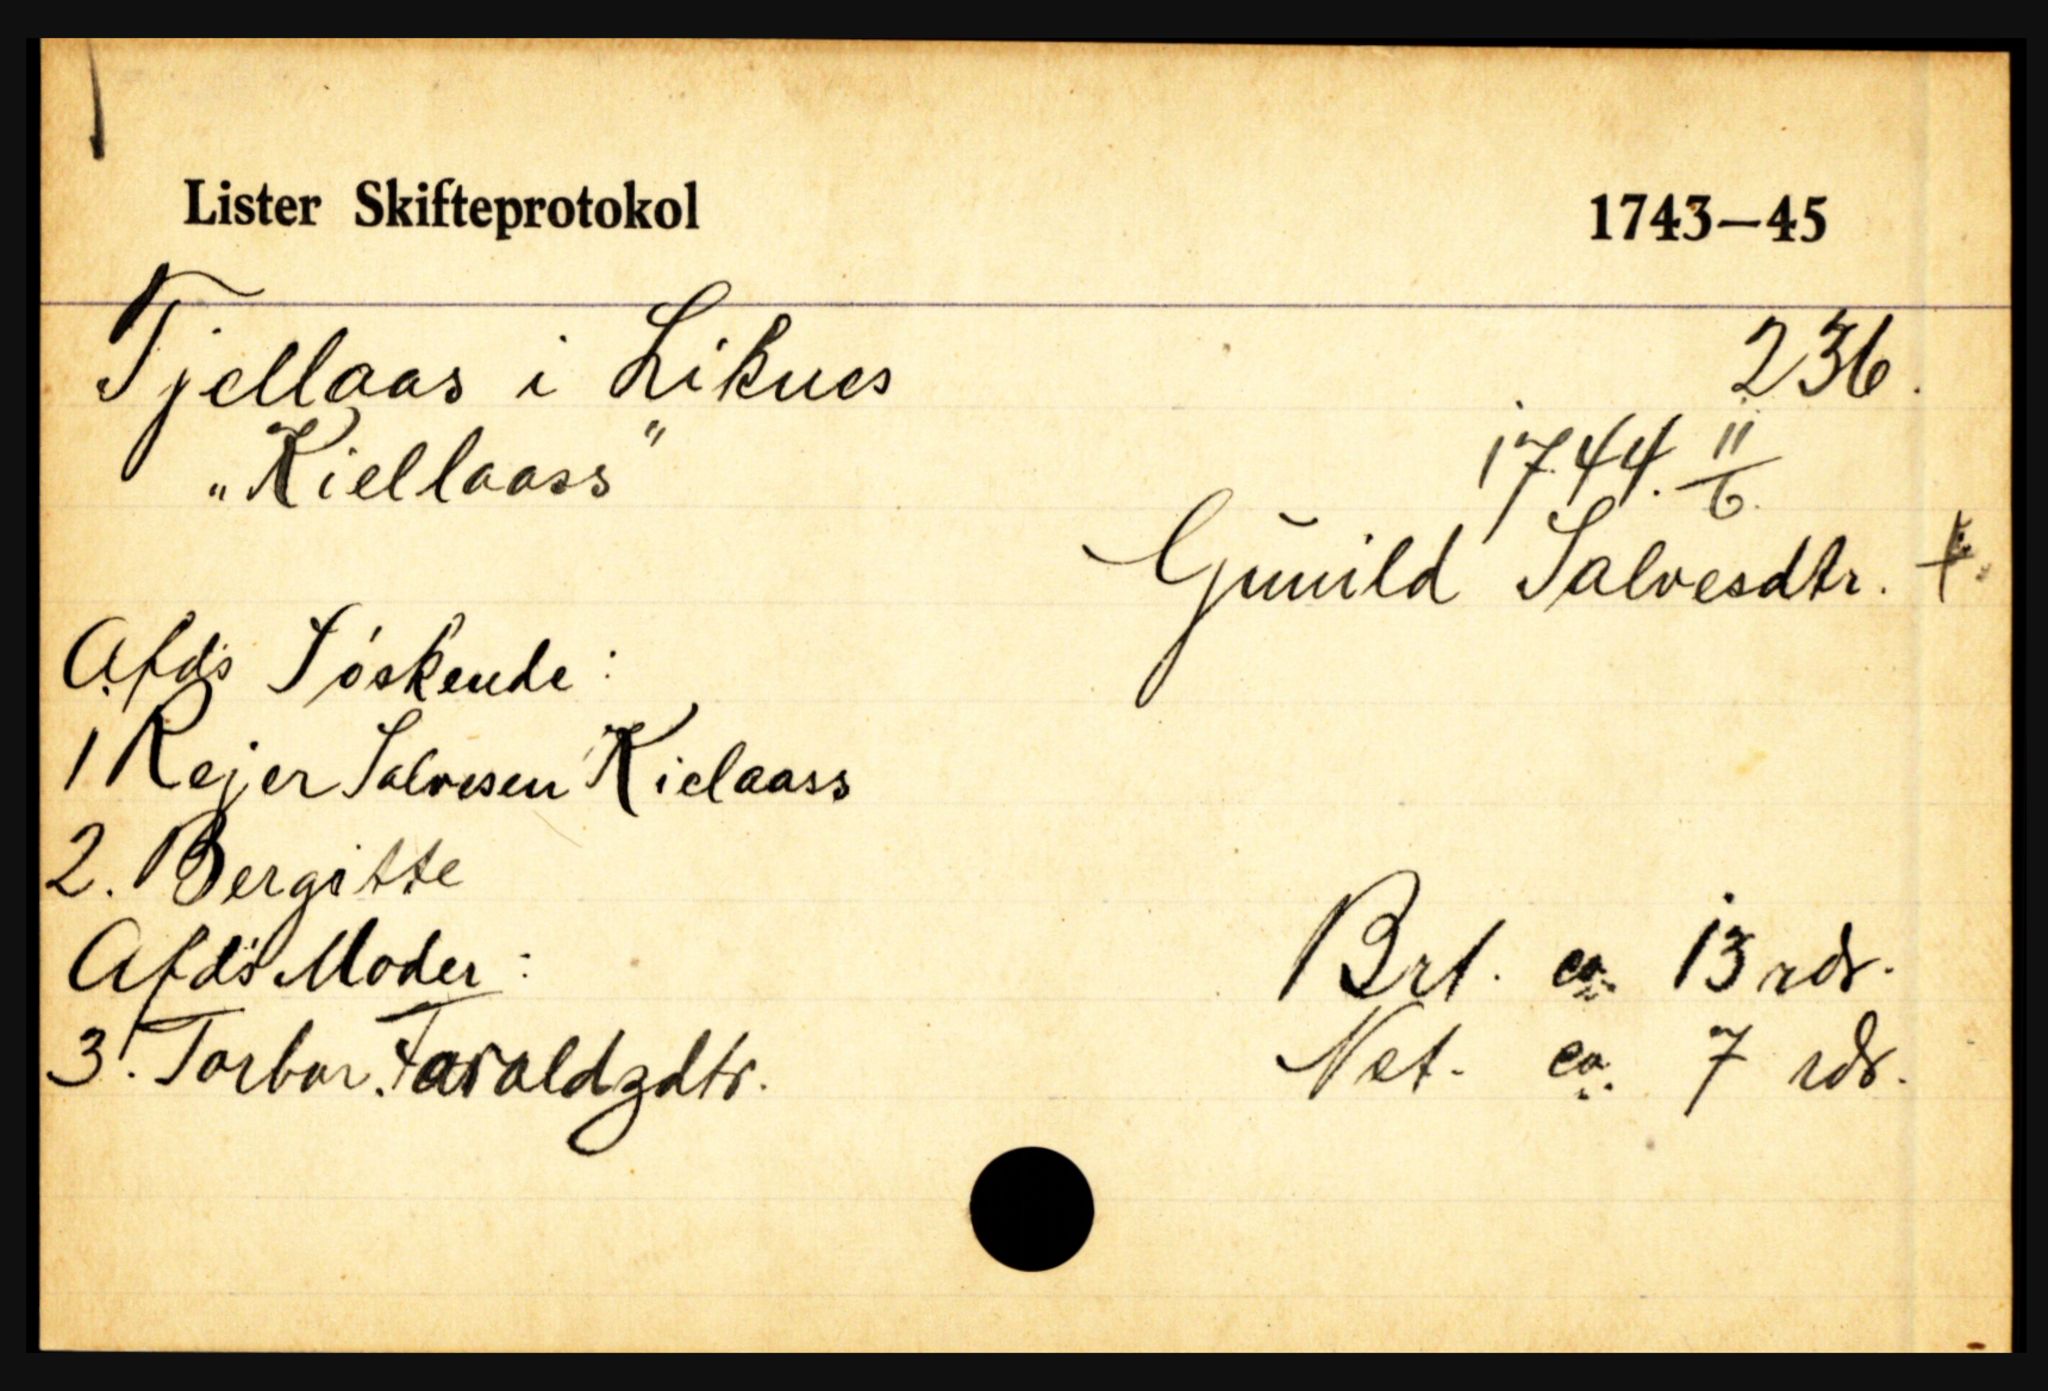 Lister Skifteprotokol 1743—45
Tjellaas i Liknes 236.
"Kiellaass" 1744. 11/6.
Gunild Salvesdtr. †.
Afd's Søskende:
1 Rejer Salvesen Kielaass
2. Bergitte
Afd's Moder:
3. Torbor Taraldzdtr.
Brt. ca. 13 rdr.
Net. ca. 7 rdr.